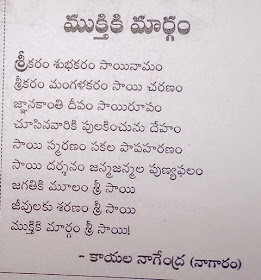 ముక్తికి మార్గం
శ్రీకరం శుభకరం సాయినామం
శ్రీకరం మంగళకరం సాయి చరణం
జ్ఞానకాంతి దీపం సాయిరూపం
చూసినవారికి పులకించును దేహం
సాయి స్మరణం సకల పాపహరణం
సాయి దర్శనం జన్మజన్మల పుణ్యఫలం
జగతికి మూలం శ్రీ సాయి
జీవులకు శరణం శ్రీ సాయి
ముక్తికి మార్గం శ్రీ సాయి!
- కాయల నాగేంద్ర (నాగారం)